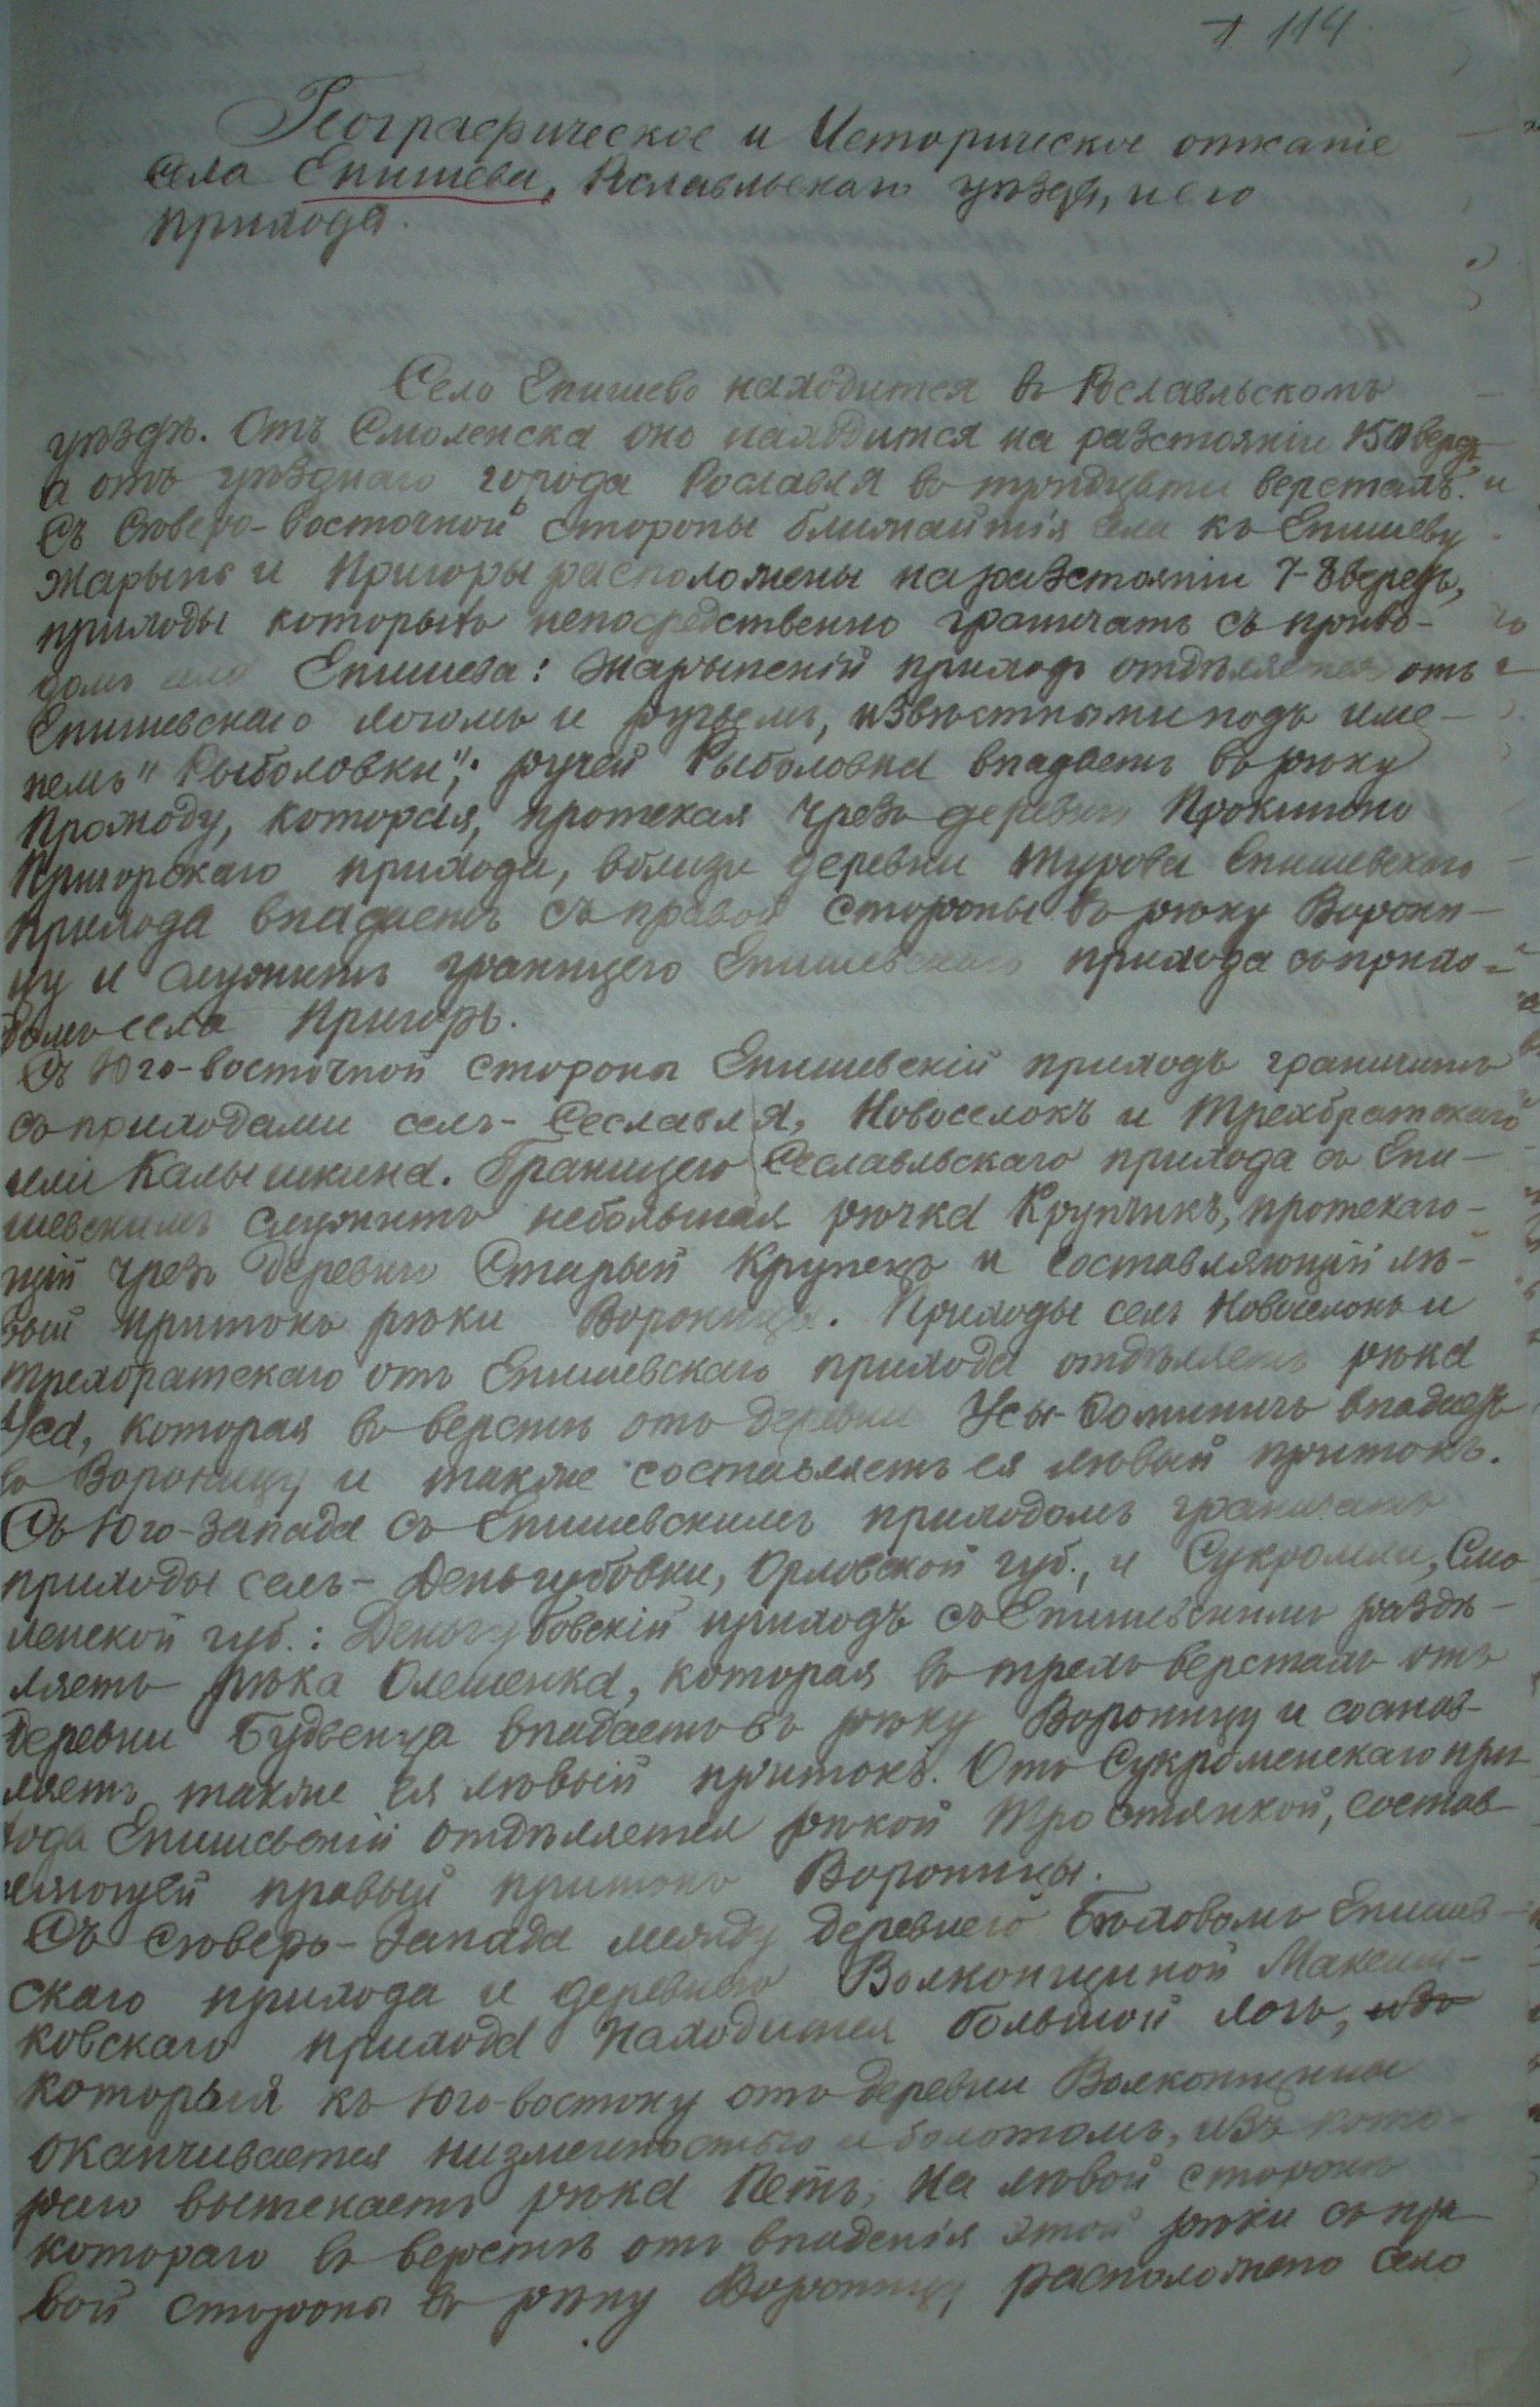 114
Географическое и Историческое описаніе
села Епишева, Рославльскаго уѣзда, и его
прихода.
Село Епишево находится въ Рославльскомъ
уѣздѣ. Отъ Смоленска оно находится на разстояніи 150 верстъ,
а отъ уѣзднаго города Рославля въ тридцати верстахъ.
Съ Сѣверо-восточной стороны ближайшія села къ Епишеву
Жарынь и Пригоры расположены на разстояніи 7-8 верстъ,
приходы которыхъ непосредственно граничатъ съ прихо-
домъ села Епишева: Жарынскій приходъ отдѣляется отъ
Епишевскаго логомъ и ручьемъ, извѣстными подъ име-
немъ "Рыболовки"; ручей Рыболовка впадаетъ въ рѣку
которая, протекая чрезъ деревню
Пригорскаго прихода, вблизи деревни Турова Епишевскаго
прихода впадаетъ съ правой стороны въ рѣку Ворони-
цу и служитъ границею Епишевскаго прихода съ прихо-
домъ села Пригоръ.
Съ Юго-восточной стороны Епишевскій приходъ граничитъ
съ приходами селъ - Сеславля, Новоселокъ и Трехбратскаго
или Калышкина. Границею Сеславльскаго прихода съ Епи-
шевскимъ служитъ небольшая рѣчка Крупчикъ, протекаю-
щій чрезъ деревню Старый Крупецъ и составляющій лѣ-
вый притокъ рѣки Вороницы. Приходы селъ Новоселокъ и
Трехбратскаго отъ Епишевскаго прихода отдѣляетъ рѣка
Уса, которая въ верстѣ отъ деревни впадаетъ
въ Вороницу и также составляетъ ея лѣвый притокъ.
Съ Юго-запада съ Епишевскимъ приходомъ граничатъ
приходы селъ - Деньгубовки, Орловской губ., и Сукромли, Смо
ленской губ.: Деньгубовскій приходъ съ Епишевскимъ раздѣ-
ляетъ рѣка Олешенка, которая въ трехъ верстахъ отъ
деревни впадаетъ въ рѣку Вороницу и состав-
ляетъ также ея лѣвый притокъ. Отъ Сукроменскаго при
хода Епишевскій отдѣляется рѣкой Тростянкой, состав-
ляющей правый притокъ Вороницы.
Съ Сѣверо-Запада между деревнею Епишев-
скаго прихода и деревнею Волконщиной
ковскаго прихода находится большой логъ, изъ
который къ Юго-востоку отъ деревни Волконщины
оканчивается низменностью и болотомъ, изъ кото-
раго вытекаетъ рѣка Петь, на лѣвой сторонѣ
котораго въ верстѣ отъ впаденія этой рѣки съ пра
вой стороны въ рѣку Вороницу расположено село